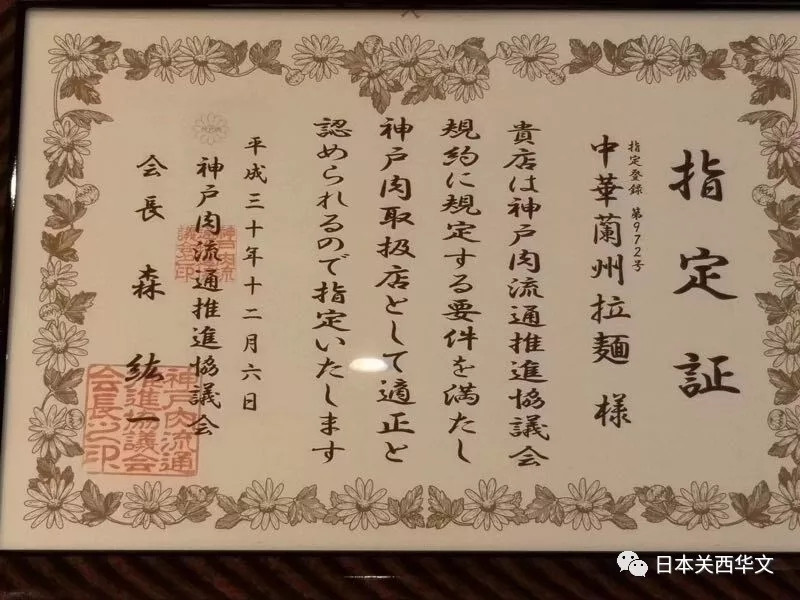 指定証
指定登録 第972号
中華蘭州拉麺 様
貴店は神戸肉流通推進協議会
規約に規定する要件を満たし
神戸肉取扱店として適正と
認められるので指定いたします
平成三十年十二月六日
神戸肉流通推進協議会
会長 森 紘一
神戸肉流
通推進協
議会之印
神戸肉流通
推進協議会
会長之印
日本关西华文